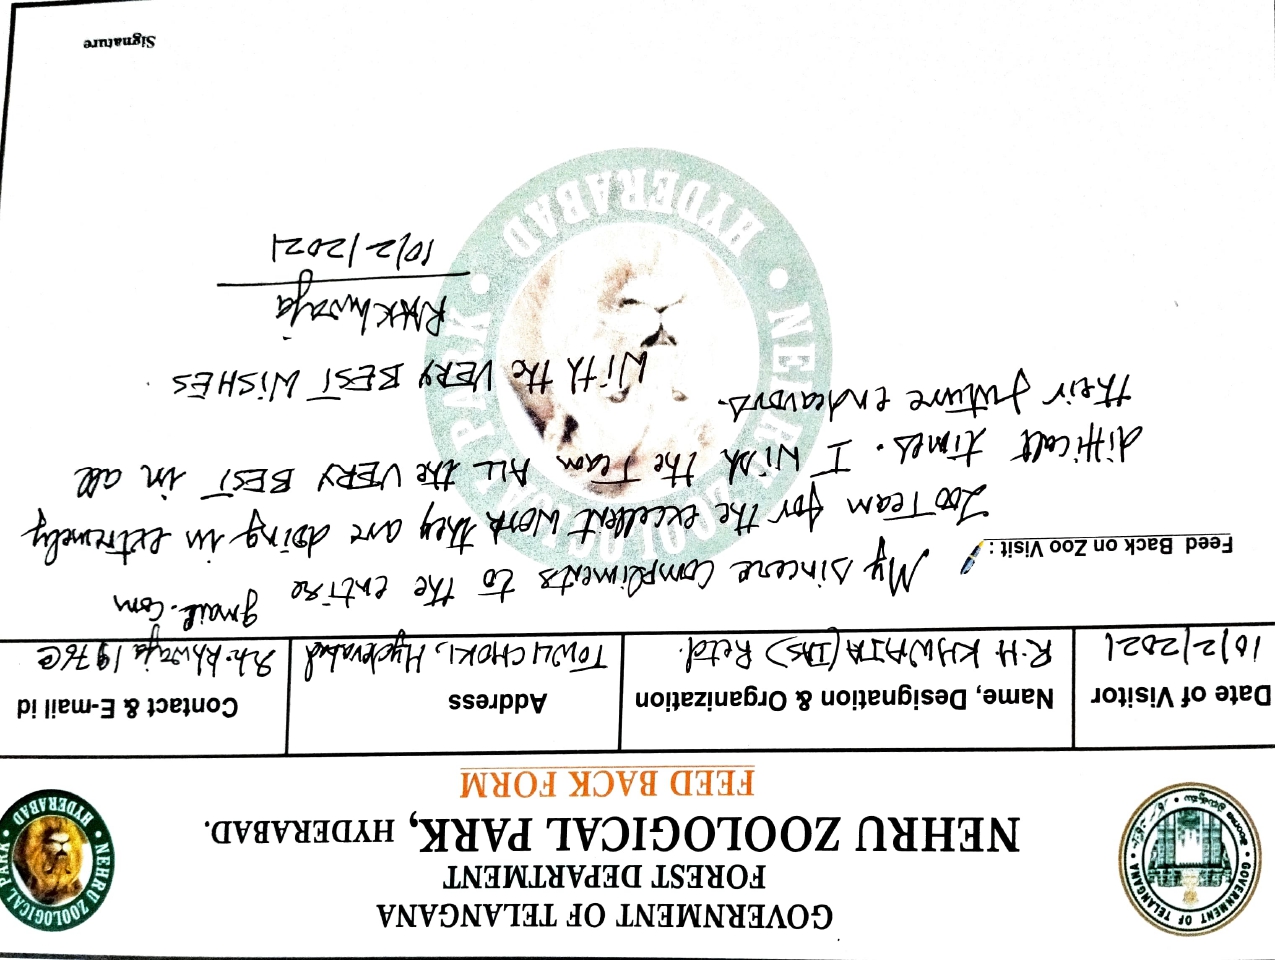 GOVERNMENT OF TELANGANA
FOREST DEPARTMENT
NEHRU ZOOLOGICAL PARK, HYDERABAD.
FEED BACK FORM
GOVERNMENT OF TELANGANA
NEHRU ZOOLOGICAL PARK • HYDERABAD •
Date of Visitor
Name, Designation & Organization
Address
Contact & E-mail id
10/2/2021
R.H KHWAJA (IAS) Retd.
TOWLICHOKI, Hyderabad
r.h.khwaja1976@
gmail.com
Feed Back on Zoo Visit :
My sincere compliments to the entire
Zoo Team for the excellent work they are doing in extremely
difficult times. I wish the Team ALL the VERY BEST in all
their future endeavors.
With the VERY BEST WISHES
RHKhwaja
10/2/2021
NEHRU ZOOLOGICAL PARK • HYDERABAD •
Signature